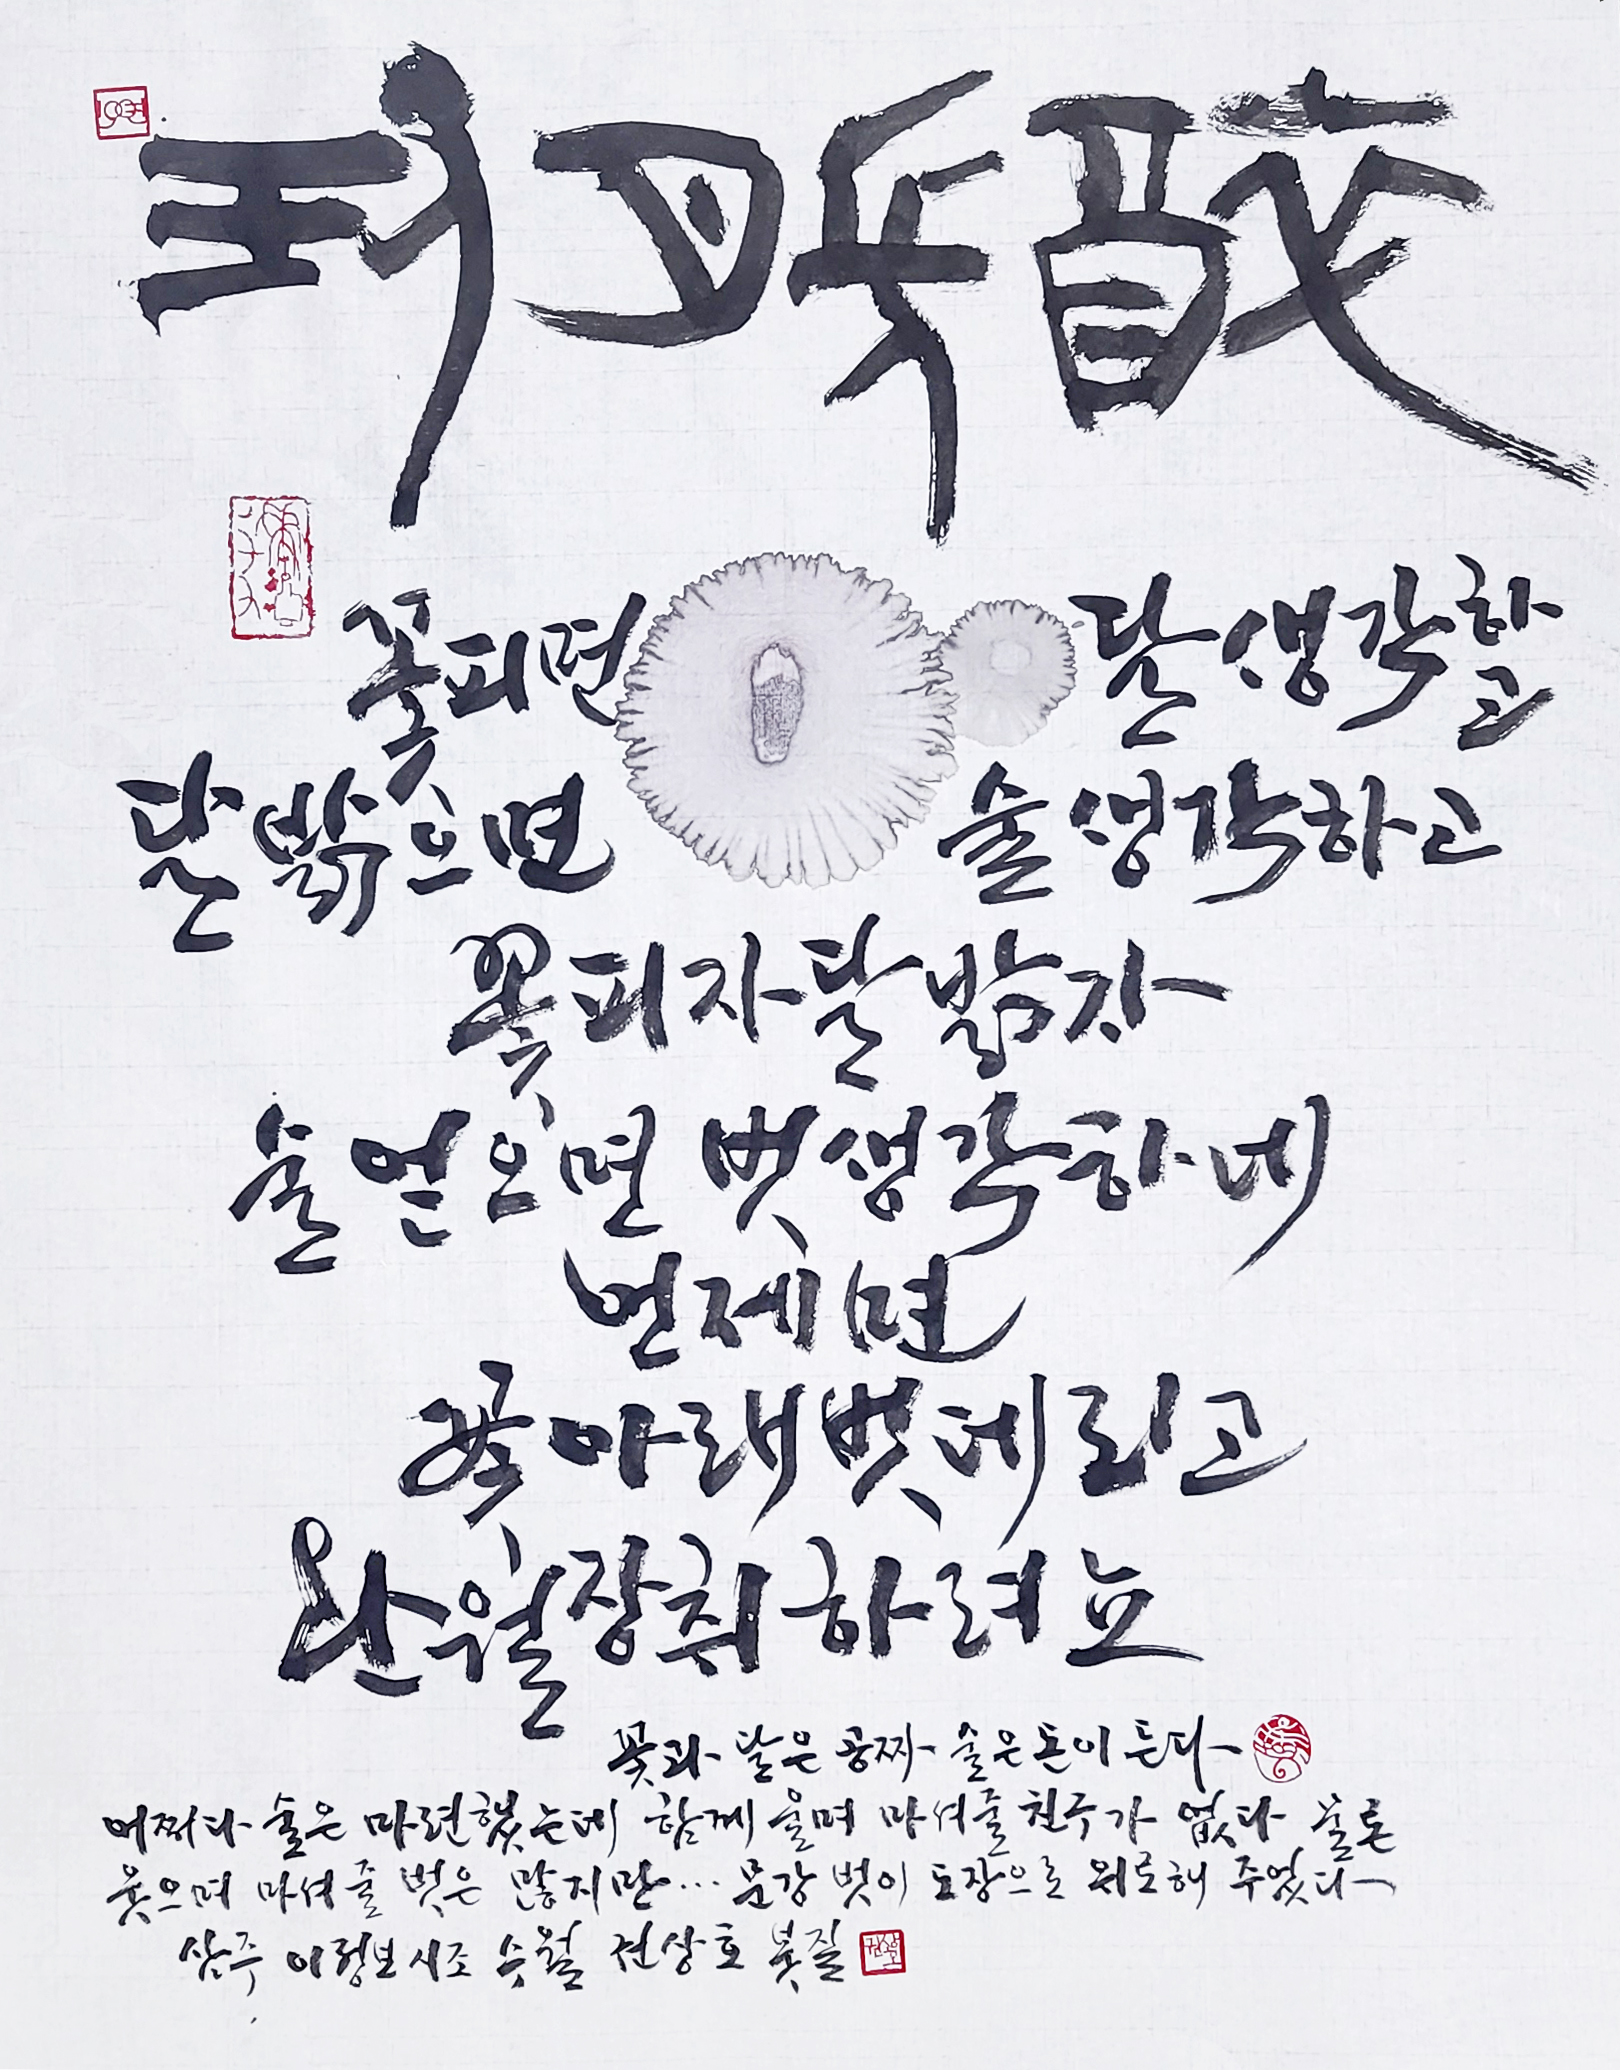 玩月長醉
꽃피면 달 생각하고
달 밝으면 술 생각하고
꽃피자 달 밝자
술 얻으면 벗 생각하네
언제면
꽃 아래 벗 데리고
완월장취 하려뇨
꽃과 달은 공짜 술은 돈이 든다
어쩌다 술은 마련했는데 함께 울며 마셔줄 친구가 없다 물론
웃으며 마셔줄 벗은 많지만... 문강 벗이 도장으로 위로해 주었다
삼주 이정보 시조 수월 권상호 붓질
권상호